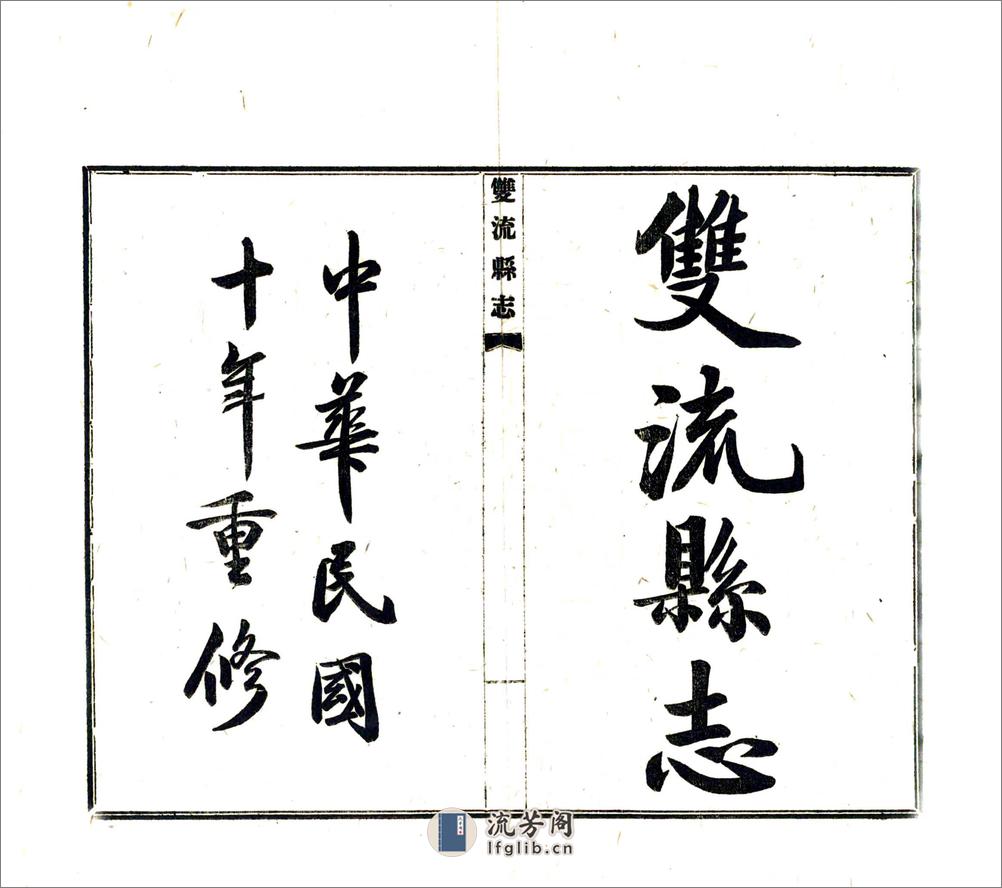 雙流縣志
雙流縣志
中華民國
十年重修
流芳阁
lfglib.cn